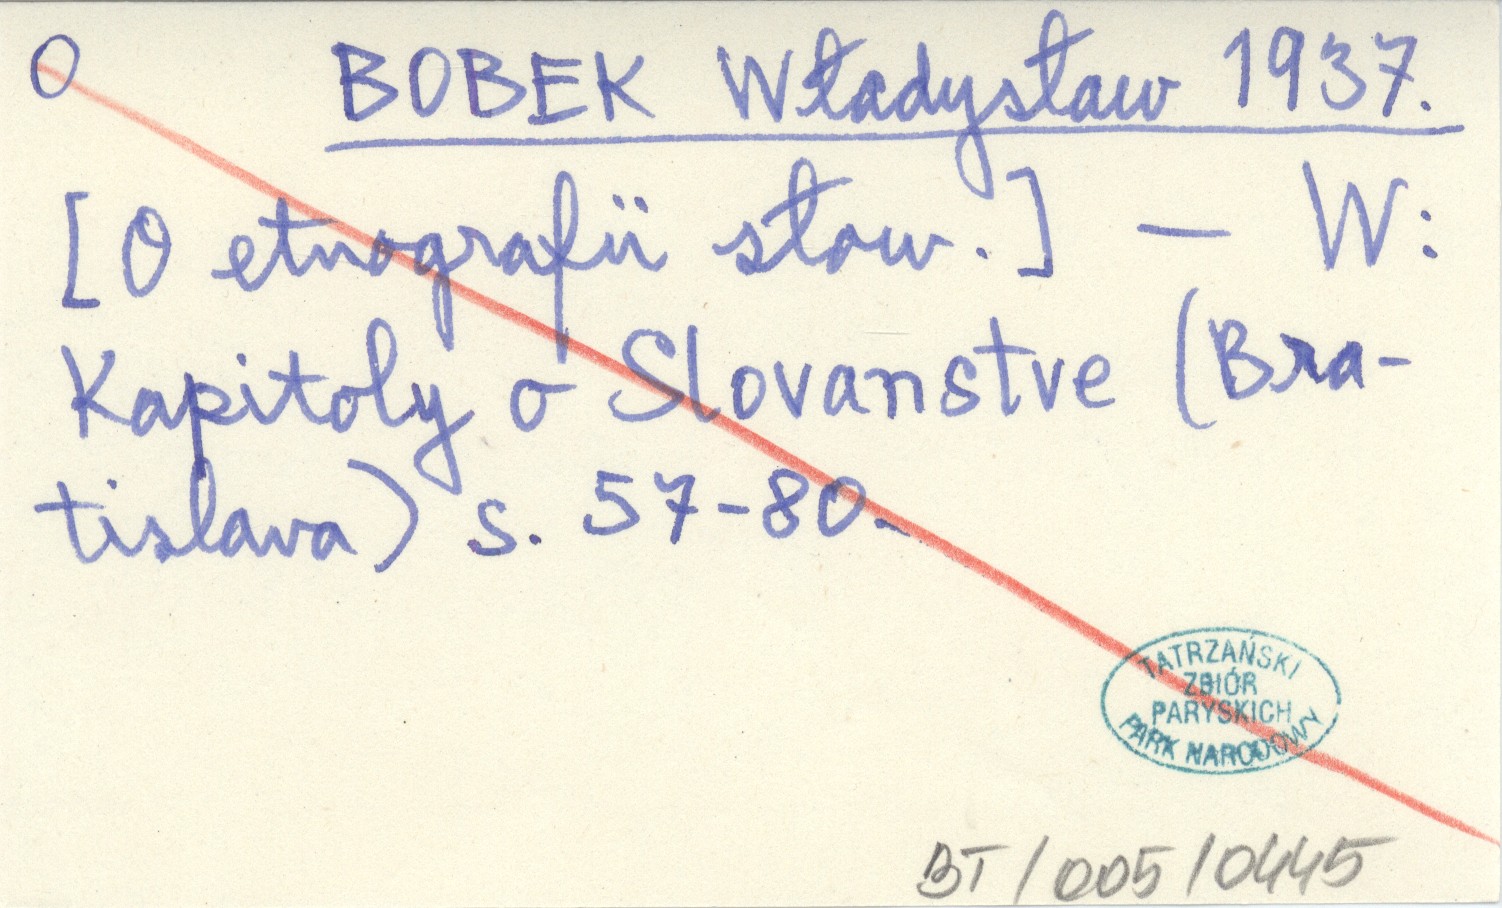 O BOBEK Władysław 1937.
[O etnografii słow.] — W:
Kapitoly o Slovanstve (Bra-
tislava) s. 57-80.
TATRZAŃSKI
ZBIÓR
PARYSKICH
PARK NARODOWY
BT/005/0445